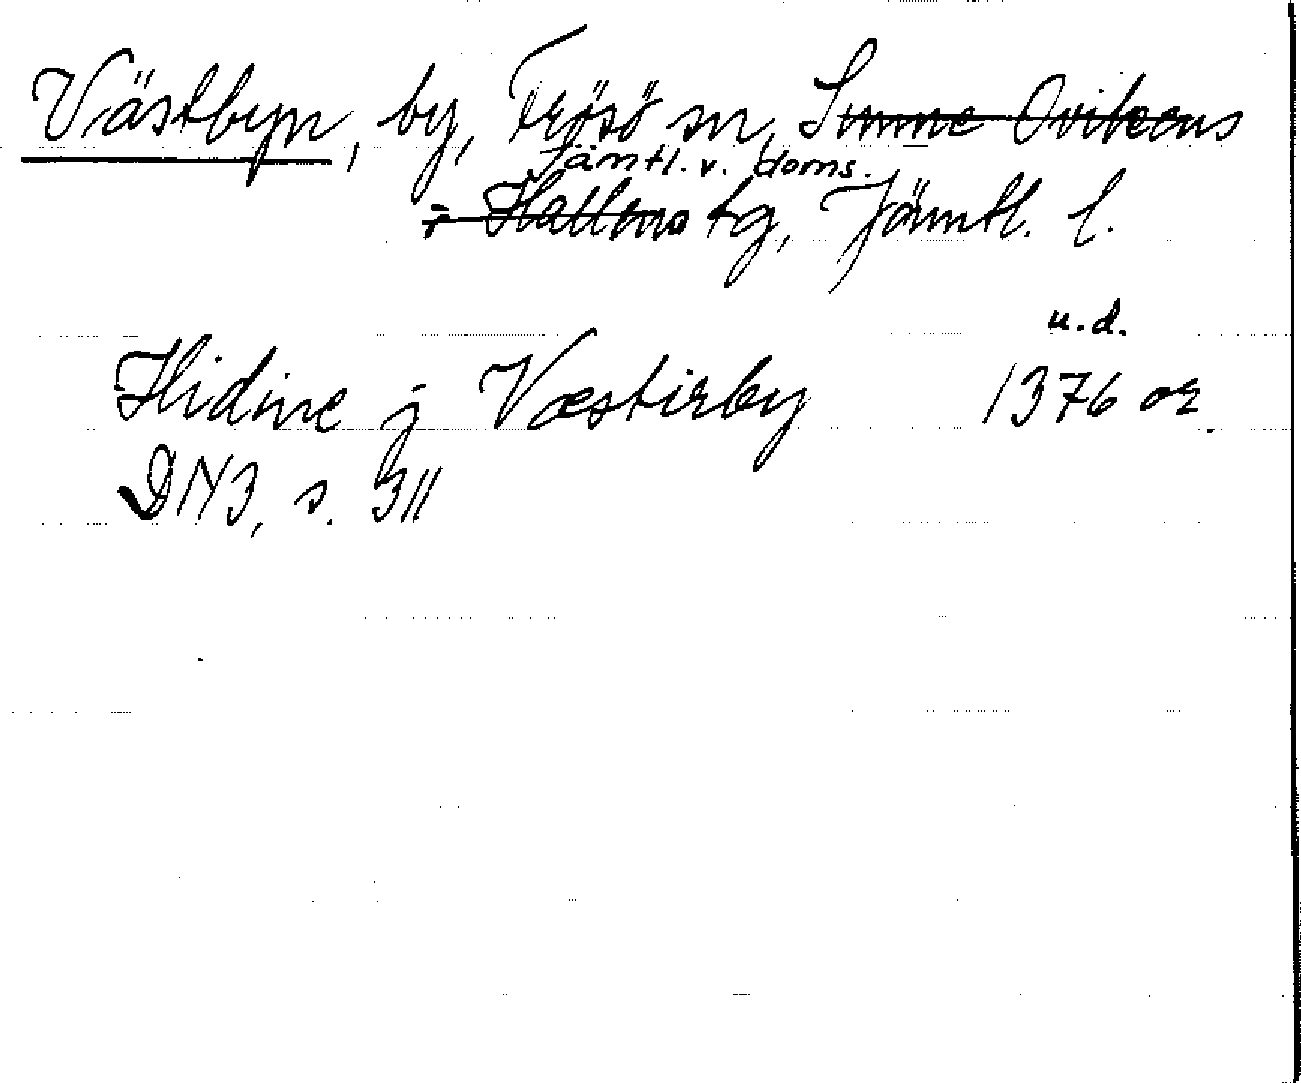 Västbyn, by, Frösö sn, Sunne Ovikens
Jämtl. v. doms.
o Hallens tg, Jämtl. l.
u.d.
Hidine j Væstirby 1376 or.
DN3, s. 311